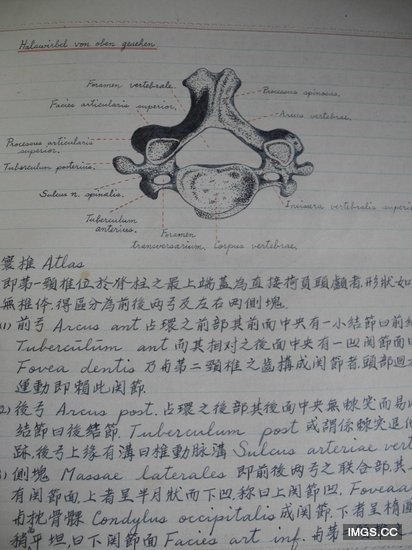 Halswirbel von oben gesehen.
Foramen vertebrale.
Facies articularis superior.
Processus spinosus.
Arcus vertebrae.
Processus articularis superior.
Tuberculum posterius.
Sulcus n. spinalis.
Tuberculum anterius.
Foramen transversarium.
Corpus vertebrae.
Incisura vertebralis superio
寰椎 Atlas
即第一頸椎位於脊柱之最上端蓋為直接荷負頭顱者,形狀如
無椎体,得區分為前後兩弓及左右兩側塊.
(1) 前弓 Arcus ant 占環之前部其前面中央有一小結節曰前結
Tuberculum ant 而其相对之後面中央有一凹関節面曰
Fovea dentis 乃与第二頸椎之齒構成関節者,頭部迴
運動即賴此関節.
2) 後弓 Arcus post. 占環之後部其後面中央無棘突而易以
結節曰後結節. Tuberculum post 或謂係棘突退化
跡,後弓上緣有溝曰椎動脈溝 Sulcus arteriae vert
) 側塊 Massae laterales 即前後兩弓之联合部,其
有関節面,上者呈半月狀而下凹,称曰上関節凹, Foveaa
与枕骨髁 Condylus occipitalis 成関節,下者呈橢圓
稍平坦,曰下関節面 Facies art inf. 与第
IMGS.CC